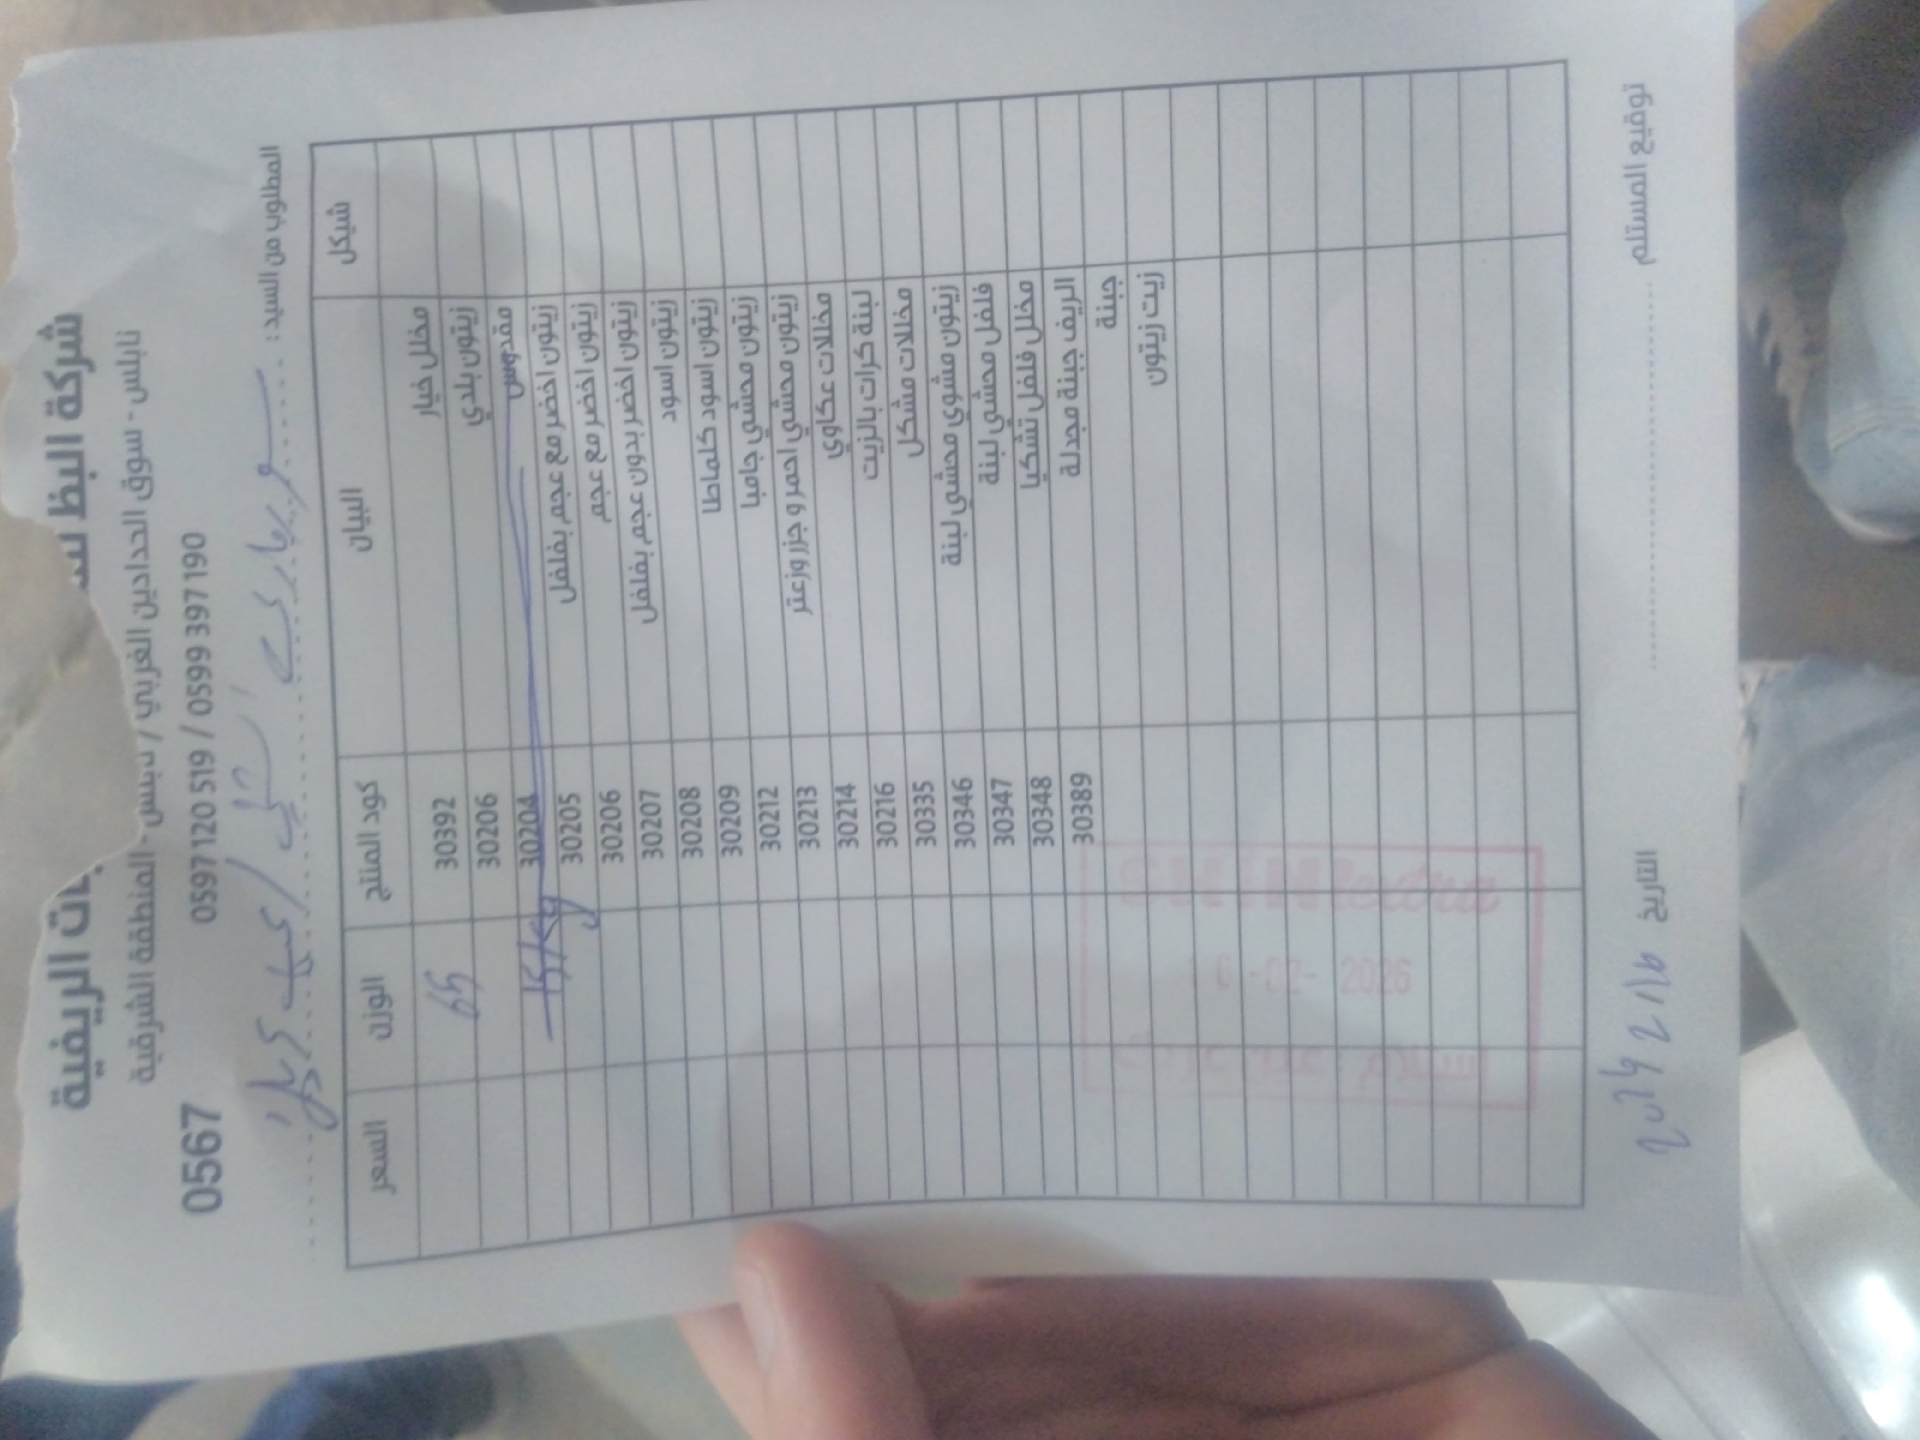 شركة البظ
ات الريفية
نابلس - سوق الحدادين الغربي / نابلس - المنطقة الشرقية
0597 120 519 / 0599 397 190
0567
المطلوب من السيد : سوبر ماركت
شيكل البيان كود المنتج الوزن السعر
مخلل خيار 30392
زيتون بلدي 30206 59
مقدوس 30204 15 kg
زيتون اخضر مع عجم بفلفل 30205
زيتون اخضر مع عجم 30206
زيتون اخضر بدون عجم بفلفل 30207
زيتون اسود 30208
زيتون اسود كلماطا 30209
زيتون محشي جامبا 30212
زيتون محشي احمر و جزر وزعتر 30213
مخللات عكاوي 30214
لبنة كرات بالزيت 30216
مخللات مشكل 30335
زيتون مشوي محشي لبنة 30346
فلفل محشي لبنة 30347
مخلل فلفل تشكيا 30348
الريف جبنة مجدلة 30389
جبنة
زيت زيتون
extra
6 -02- 2026
استلام
توقيع المستلم
التاريخ